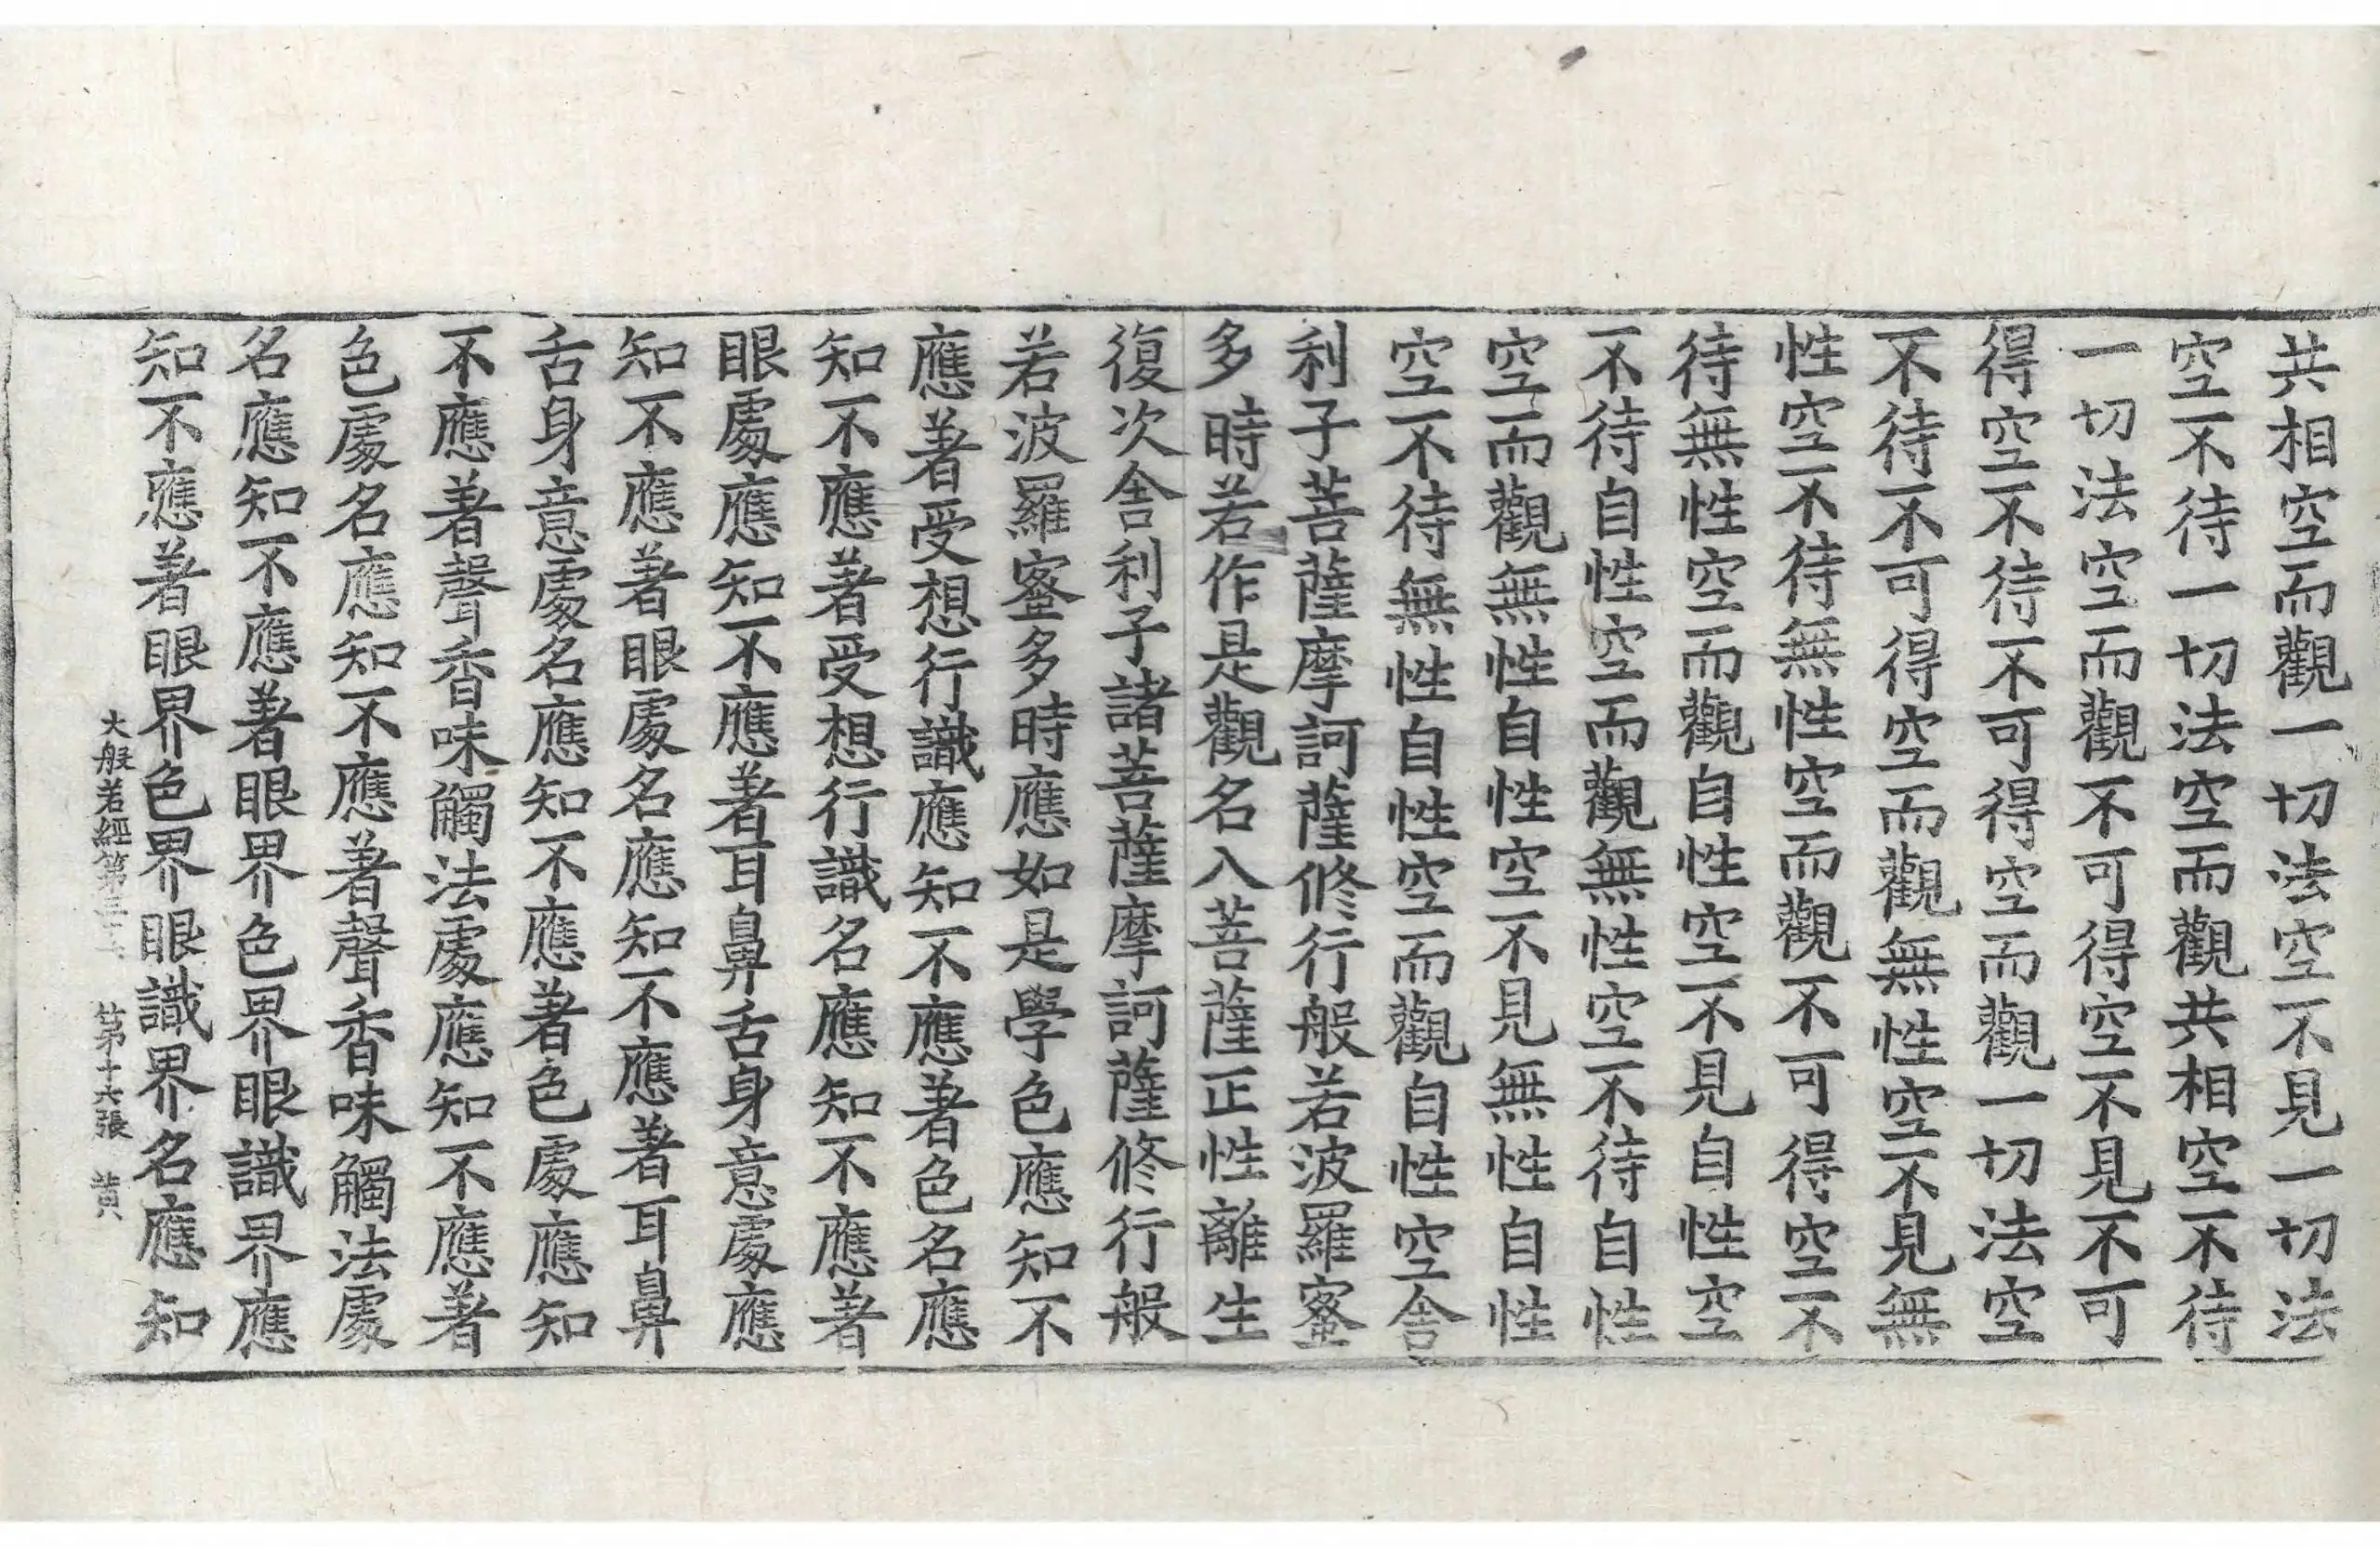 共相空而觀一切法空不見一切法
空不待一切法空而觀共相空不待
一切法空而觀不可得空不見不可
得空不待不可得空而觀一切法空
不待不可得空而觀無性空不見無
性空不待無性空而觀不可得空不
待無性空而觀自性空不見自性空
不待自性空而觀無性空不待自性
空而觀無性自性空不見無性自性
空不待無性自性空而觀自性空舍
利子菩薩摩訶薩修行般若波羅蜜
多時若作是觀名入菩薩正性離生
復次舍利子諸菩薩摩訶薩修行般
若波羅蜜多時應如是學色應知不
應著受想行識應知不應著色名應
知不應著受想行識名應知不應著
眼處應知不應著耳鼻舌身意處應
知不應著眼處名應知不應著耳鼻
舌身意處名應知不應著色處應知
不應著聲香味觸法處應知不應著
色處名應知不應著聲香味觸法處
名應知不應著眼界色界眼識界應
知不應著眼界色界眼識界名應知
大般若經第三 第十六張 黃